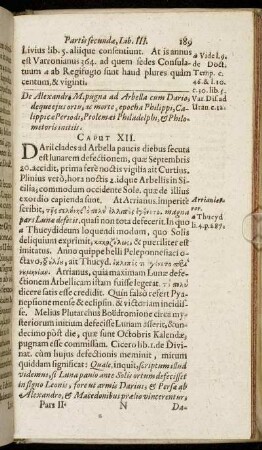 Partis secundæ, Lib. III. 189
Livius lib. 5. aliique consentiunt. At is annus
est Varronianus 364. ad quem sedes Consula-
tuum a ab Regifugio sunt haud plures quin
centum, & viginti.
a Vide l. 9.
de Doct.
Temp. c.
46. & l. 10.
c. 30. lib. 5.
Var. Dis. ad
Uran. c. 12.
De Alexandri M. pugna ad Arbella cum Dario,
deque ejus ortu, ac morte, epocha Philippi, Ca-
lippicæ Periodi, Ptolemæi Philadelphi, & Philo-
metoris initiis.
CAPUT XII.
Darii clades ad Arbella paucis diebus secuta
est lunarem defectionem, quæ Septembris
20. accidit, prima ferè noctis vigilia ait Curtius.
Plinius verò, hora noctis 2. idque Arbellis in Si-
cilia, commodum occidente Sole. quæ de illius
exordio capienda sunt. At Arrianus. imperitè
scribit, magna
pars Lunæ defecit. quasi non tota defecerit. In quo
a Thucydidem loquendi modum, quo Solis
deliquium exprimit, & pueriliter est
imitatus. Anno quippe belli Peloponnesiaci o-
ctavo,
Arrianus, quia maximam Lunæ defe-
ctionem Arbellicam istam fuisse legerat.
dicere satis esse credidit. Quin falso resert Pya-
nepsione mense & eclipsin, & victoriam incidis-
se. Melius Plutarchus Boëdromione circa my-
steriorum initium defecisse Lunam asserit, & un-
decimo post die, quæ sunt Octobris Kalendæ,
pugnam esse commissam. Cicero lib. 1. de Divi-
nat. cùm hujus defectionis meminit, miram
quoddam significat: Quale, inquit, scriptum illud
videmus, si Luna paulo ante Solis ortum defecisset
in signo Leonis, fore ut armis Darius, & Persæ ab
Alexandro, & Macedonibus prælio vincerentur,
a Thucyd.
l. 4. p. 287.
Pars II. N Da-